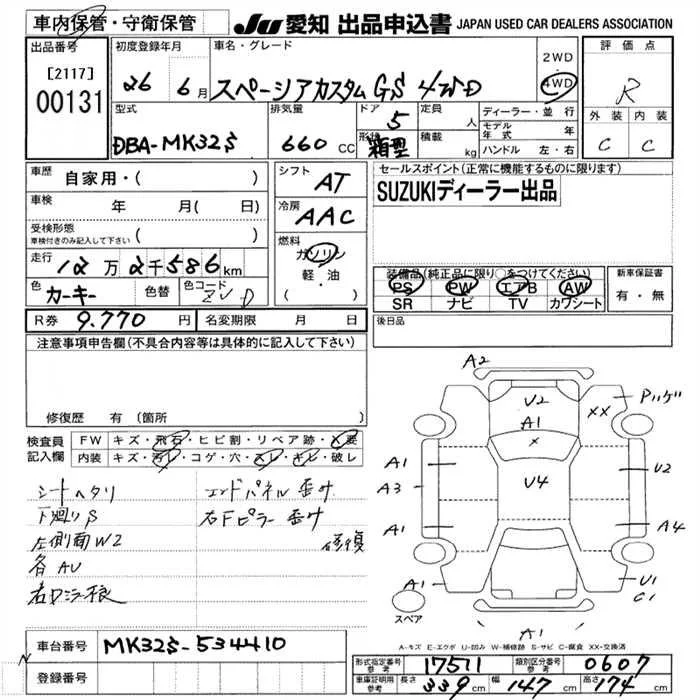 車内保管・守衛保管
JU 愛知 出品申込書 JAPAN USED CAR DEALERS ASSOCIATION
出品番号
[2117]
00131
初度登録年月
26 6月
車名・グレード
スペーシアカスタムGS 4WD
2WD
4WD
評価点
R
外装 内装
C C
型式
DBA-MK32S
排気量
660 CC
ドア
5
形状
箱型
定員
人
積載
kg
ディーラー・並行
モデル年式 年
ハンドル 左・右
車歴
自家用・( )
車検
年 月( 日)
受検形態
車検付きのみ記入して下さい
( )
走行
12万2千586km
色
カーキー
色替
色コード
ZVD
シフト
AT
冷房
AAC
燃料
ガソリン
軽・油
( )
セールスポイント(正常に機能するものに限ります)
SUZUKIディーラー出品
装備品(純正品に限り○をつけてください)
PS PW エアB AW
SR ナビ TV カワシート
新車保証書
有・無
R券 9.770円
名変期限 月 日
後日品
注意事項申告欄(不具合内容等は具体的に記入して下さい)
修復歴 有(箇所 )
検査員記入欄
FW キズ・飛石・ヒビ割・リペア跡・X要
内装 キズ・汚レ・コゲ・穴・スレ・キレ・破レ
シートヘタリ
下廻りS
左側面W2
各AU
エンドパネル歪み
右Fピラー歪み
修復
A2
U2
A1
X
XX
U4
A1
A3
A1
A1
U2
A4
U1
C1
A1
スペア
A-キズ E-エクボ U-凹み W-補修跡 S-サビ C-腐食 XX-交換済
車台番号
MK32S-534410
登録番号
形式指定番号
参考
17511
類別区分番号
参考
0607
車庫証明用
参考
長さ 339cm
幅 147cm
高さ 174cm